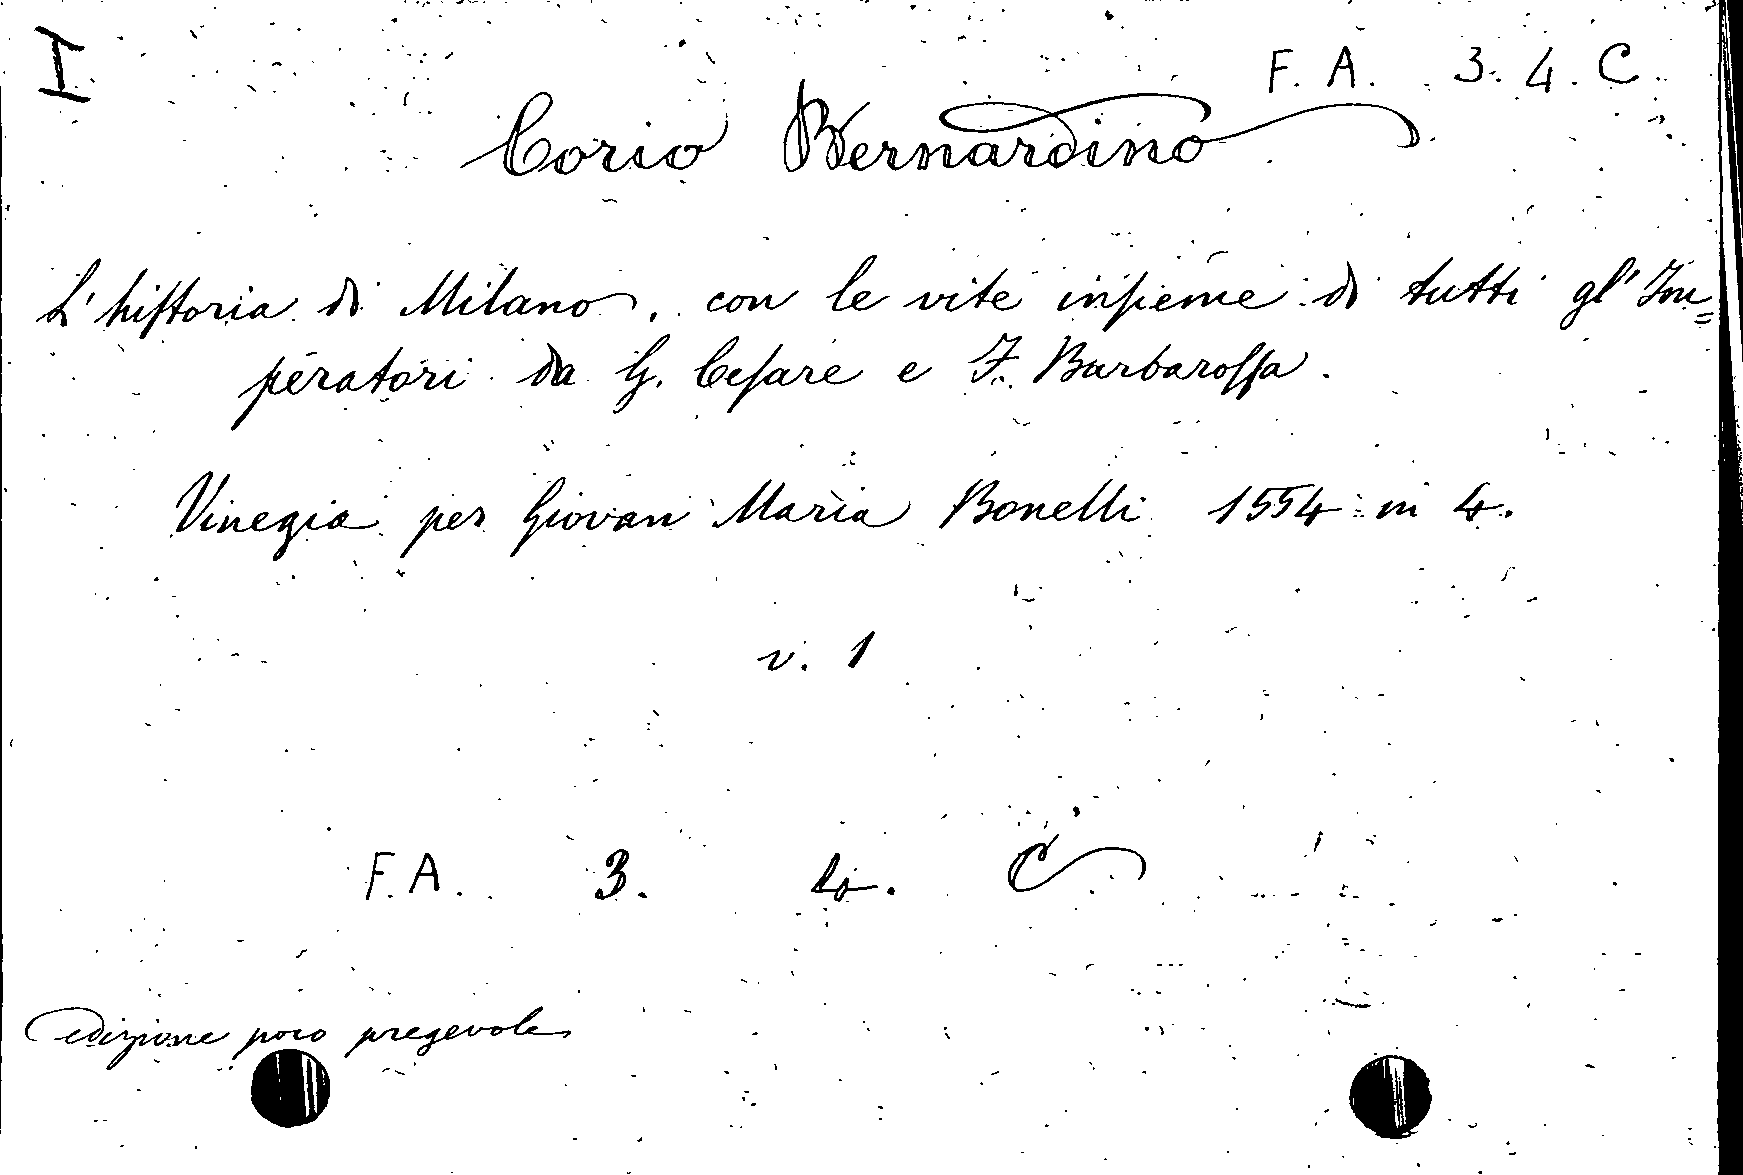 I
F. A. 3. 4. C
Corio Bernardino
L'hiſtoria di Milano, con le vite inſieme di tutti gl'Im=
peratori da G. Ceſare e F. Barbaroſſa.
Vinegia per Giovan Maria Bonelli 1554 in 4.
v. 1
F. A. 3. 4. C
edizione poco pregevole